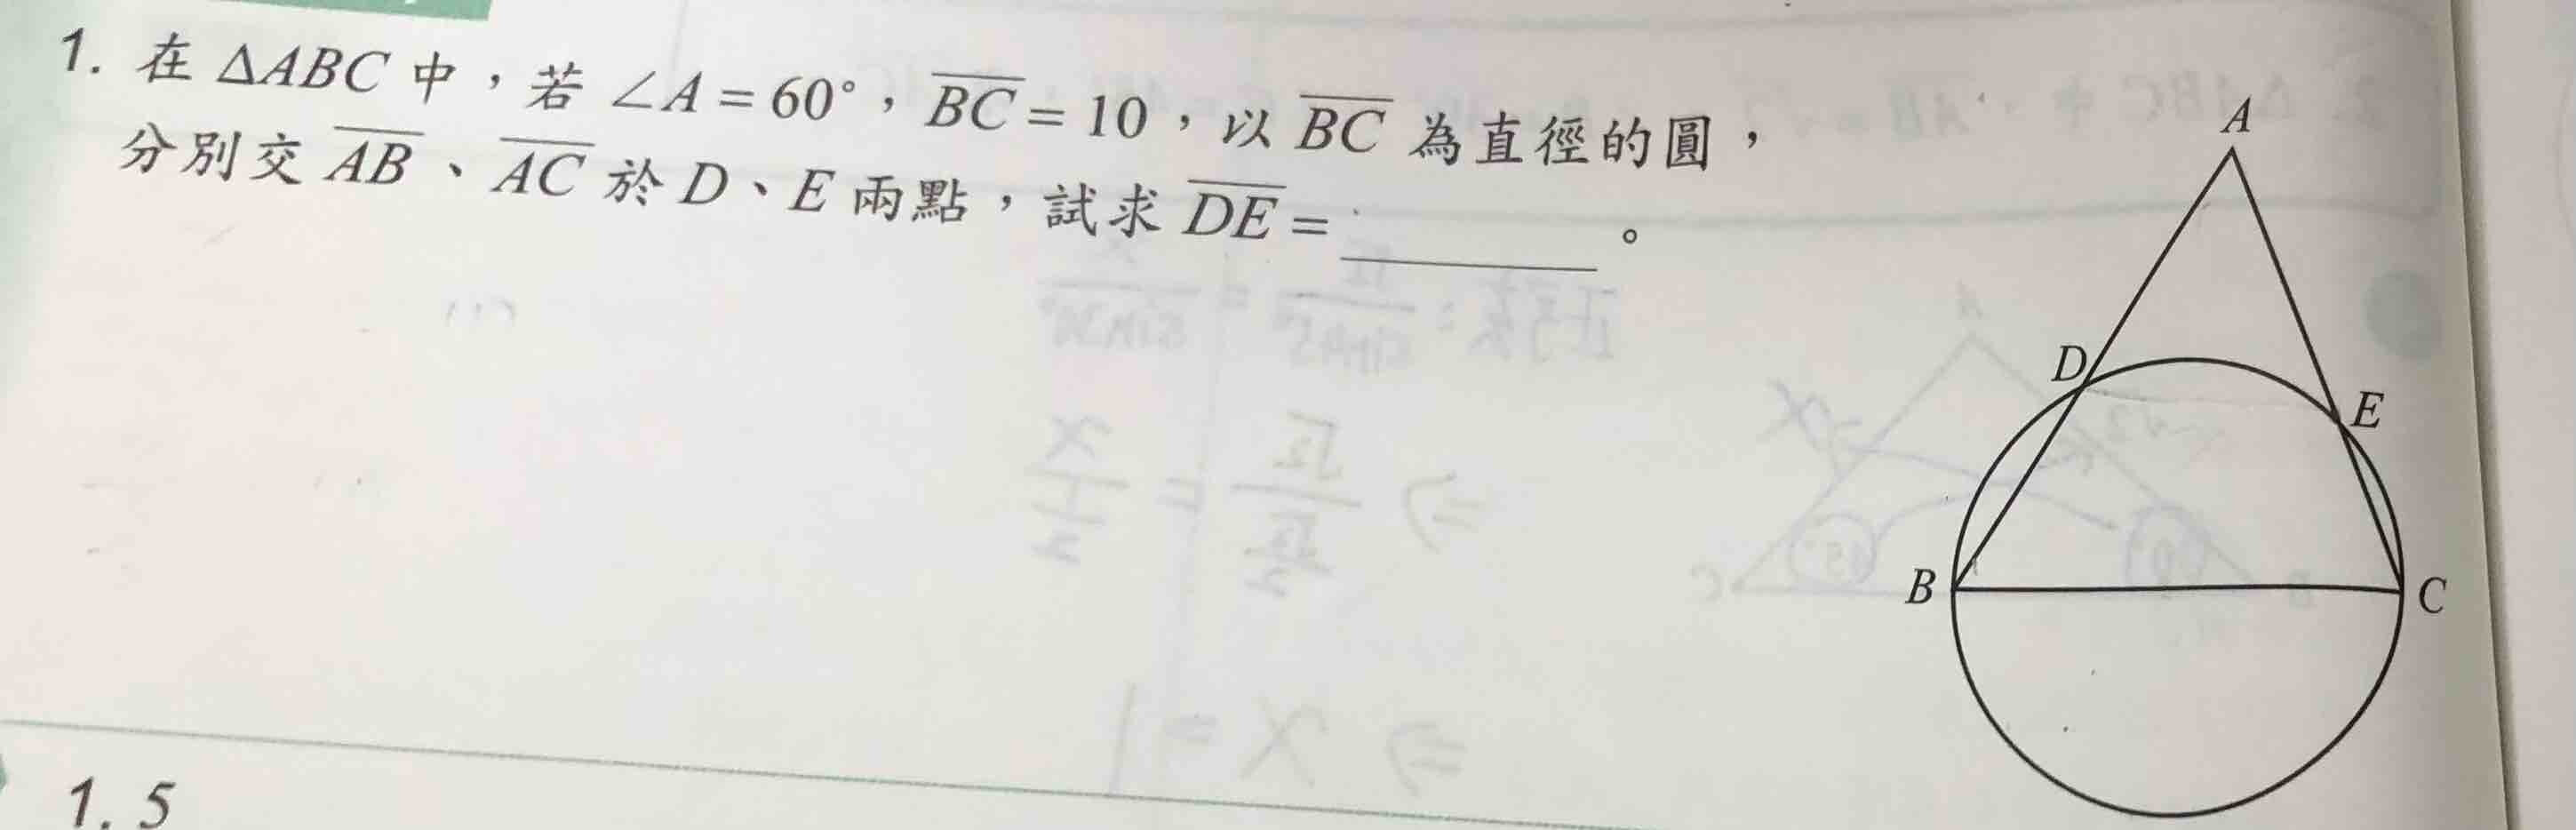 1. 在 △ABC 中，若 ∠A = 60°，\overline{BC} = 10，以 \overline{BC} 為直徑的圓，
分別交 \overline{AB}、\overline{AC} 於 D、E 兩點，試求 \overline{DE} = ________。
A
D
E
B
C
1. 5